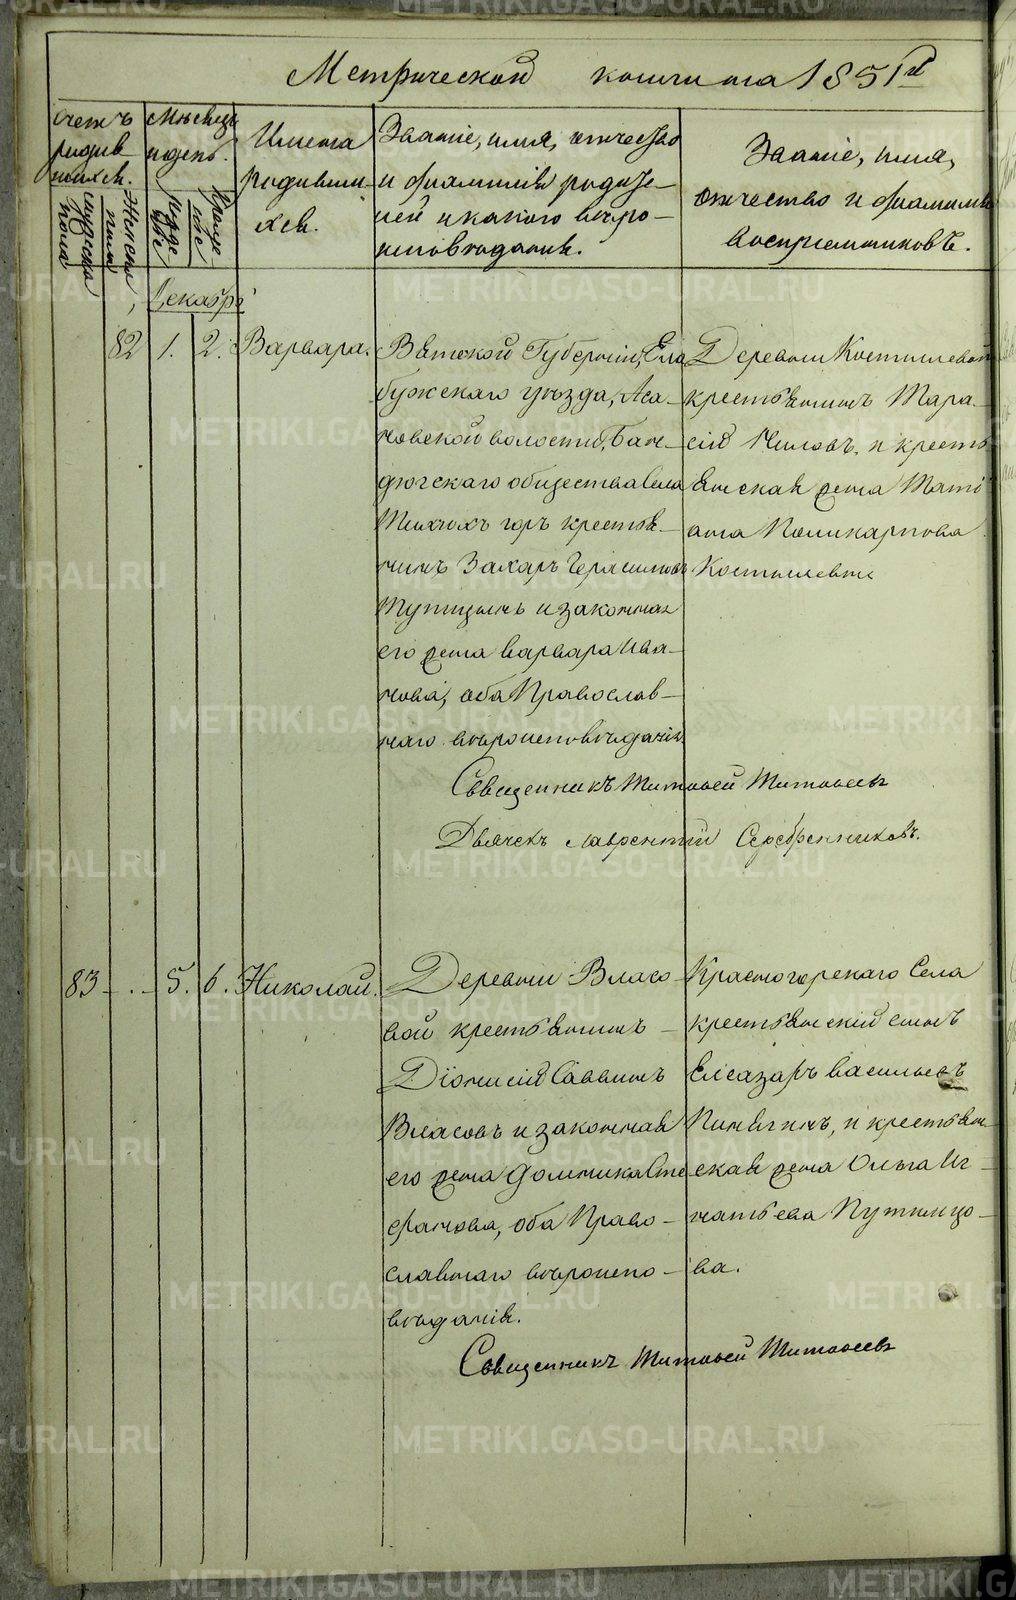 Метрической книги на 1851й
Счетъ родившихся.
Мужеска пола
Женска пола
Мѣсяцъ и день.
рожденіе
крещеніе
Имена родившихся.
Званіе, имя, отчество
и фамилія родите-
лей и какого вѣро-
исповѣданія.
Званіе, имя,
отчество и фамилія
воспріемниковъ.
Декабрь
82 1. 2. Варвара.
Вятской Губерніи, Ела
бужскаго уѣзда, Аса-
новской волости, Бан-
дюгскаго общества села
Тихихъ горъ крестья-
нинъ Захаръ Герасимовъ
и законная
его жена Варвара Ива-
нова, оба Православ-
наго вѣроисповѣданія.
Деревни Костылевой
крестьянинъ Тара-
сій Ниловъ, и кресть
янская жена Таті
ана Поликарпова
Костылева
Священникъ Матвей Матвеевъ
Дьячекъ Лаврентій Серебренниковъ.
83 - . - 5. 6. Николай.
Деревни Власо
вой крестьянинъ
Діонисій Саввинъ
Власовъ и законная
его жена Домника Сте
фанова, оба Право-
славнаго вѣроиспо-
вѣданія.
Красногорскаго Села
крестьянскій сынъ
Елеазаръ Васильевъ
Пинягинъ, и крестьян-
ская жена Ольга Иг-
натьева Путинцо-
ва.
Священникъ Матвей Матвеевъ
METRIKI.GASO-URAL.RU